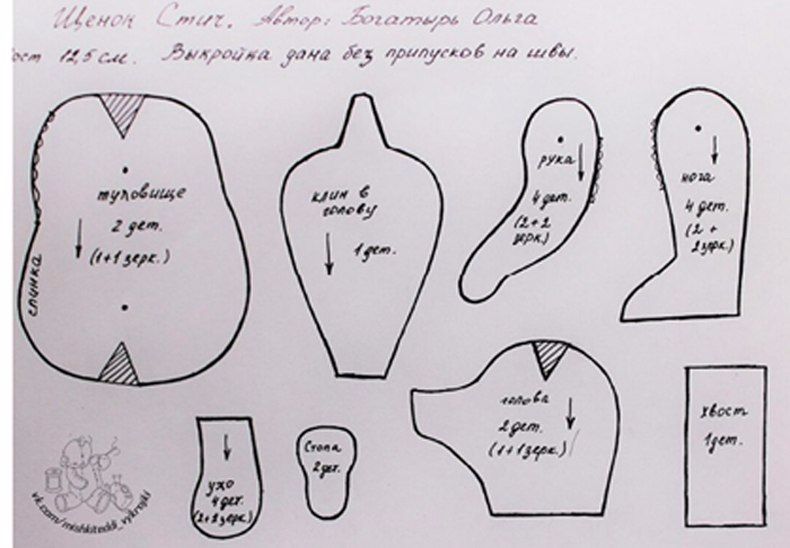 Щенок Стич. Автор: Богатырь Ольга
ост 12,5 см. Выкройка дана без припусков на швы.
туловище
2 дет.
(1+1 зерк.)
спинка
клин в
голову
1 дет.
рука
4 дет.
(2+2
зерк.)
нога
4 дет.
(2 +
2 зерк.)
ухо
4 дет.
(2+2 зерк.)
Стопа
2 дет.
голова
2 дет.
(1+1 зерк.)
хвост
1 дет.
vk.com/mishkiteddi_vykrojki